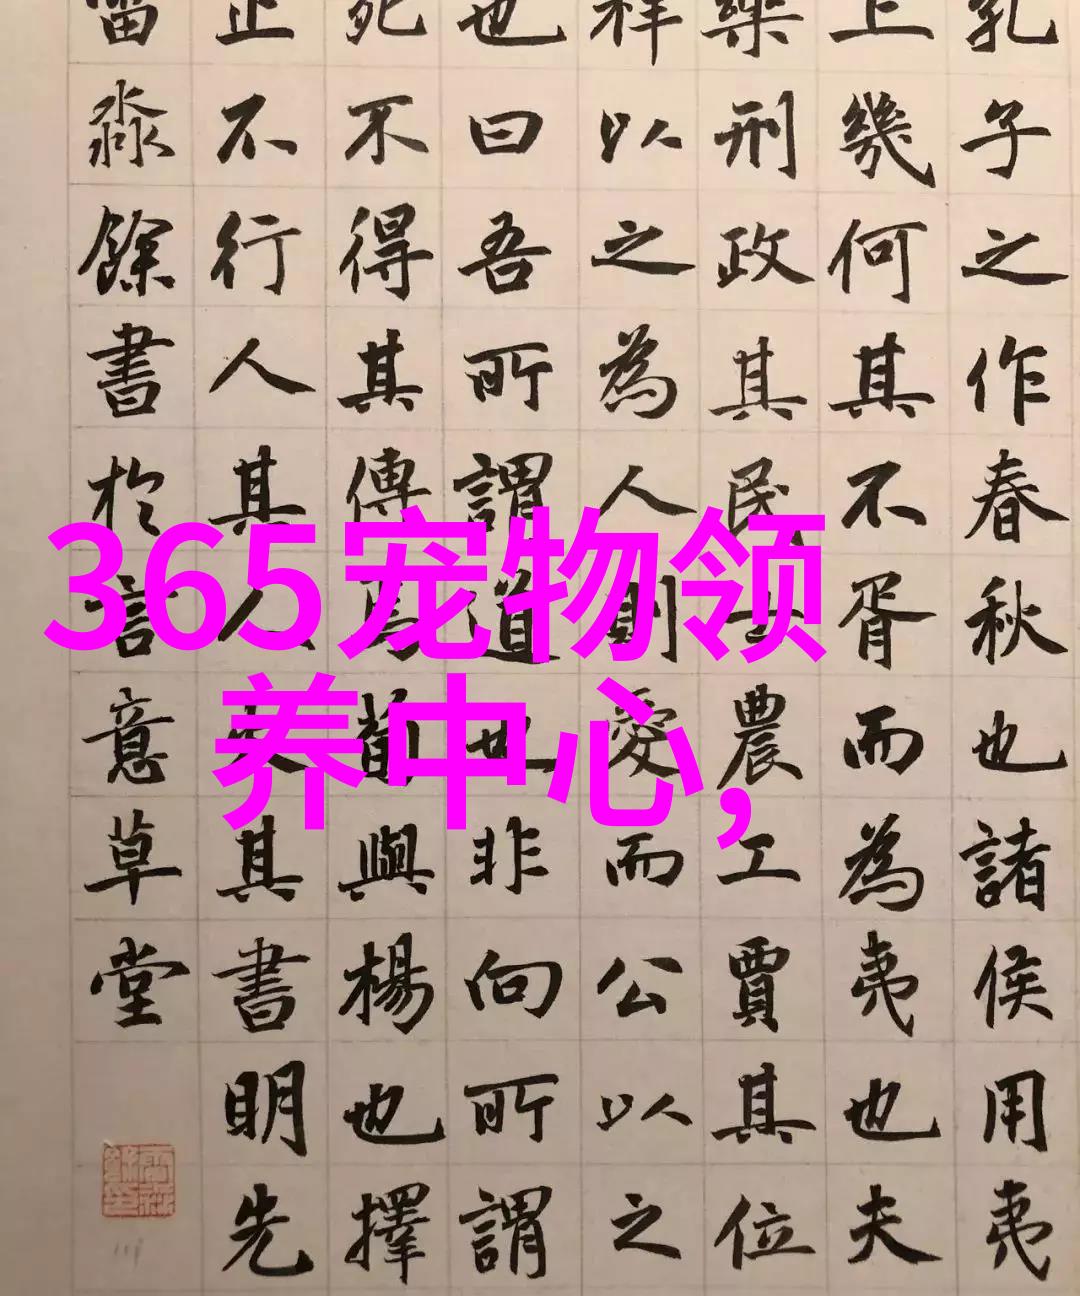 孔子之作春秋也諸侯用夷
上幾何其不胥而為夷也夫
樂刑政其民士農工賈其位
祥以之為人則愛而公以之
也曰吾所謂道也非向所謂
死不得其傳焉荀與楊也擇
止不行人其人火其書明先
淼餘書於言意草堂
365宠物领
养中心,